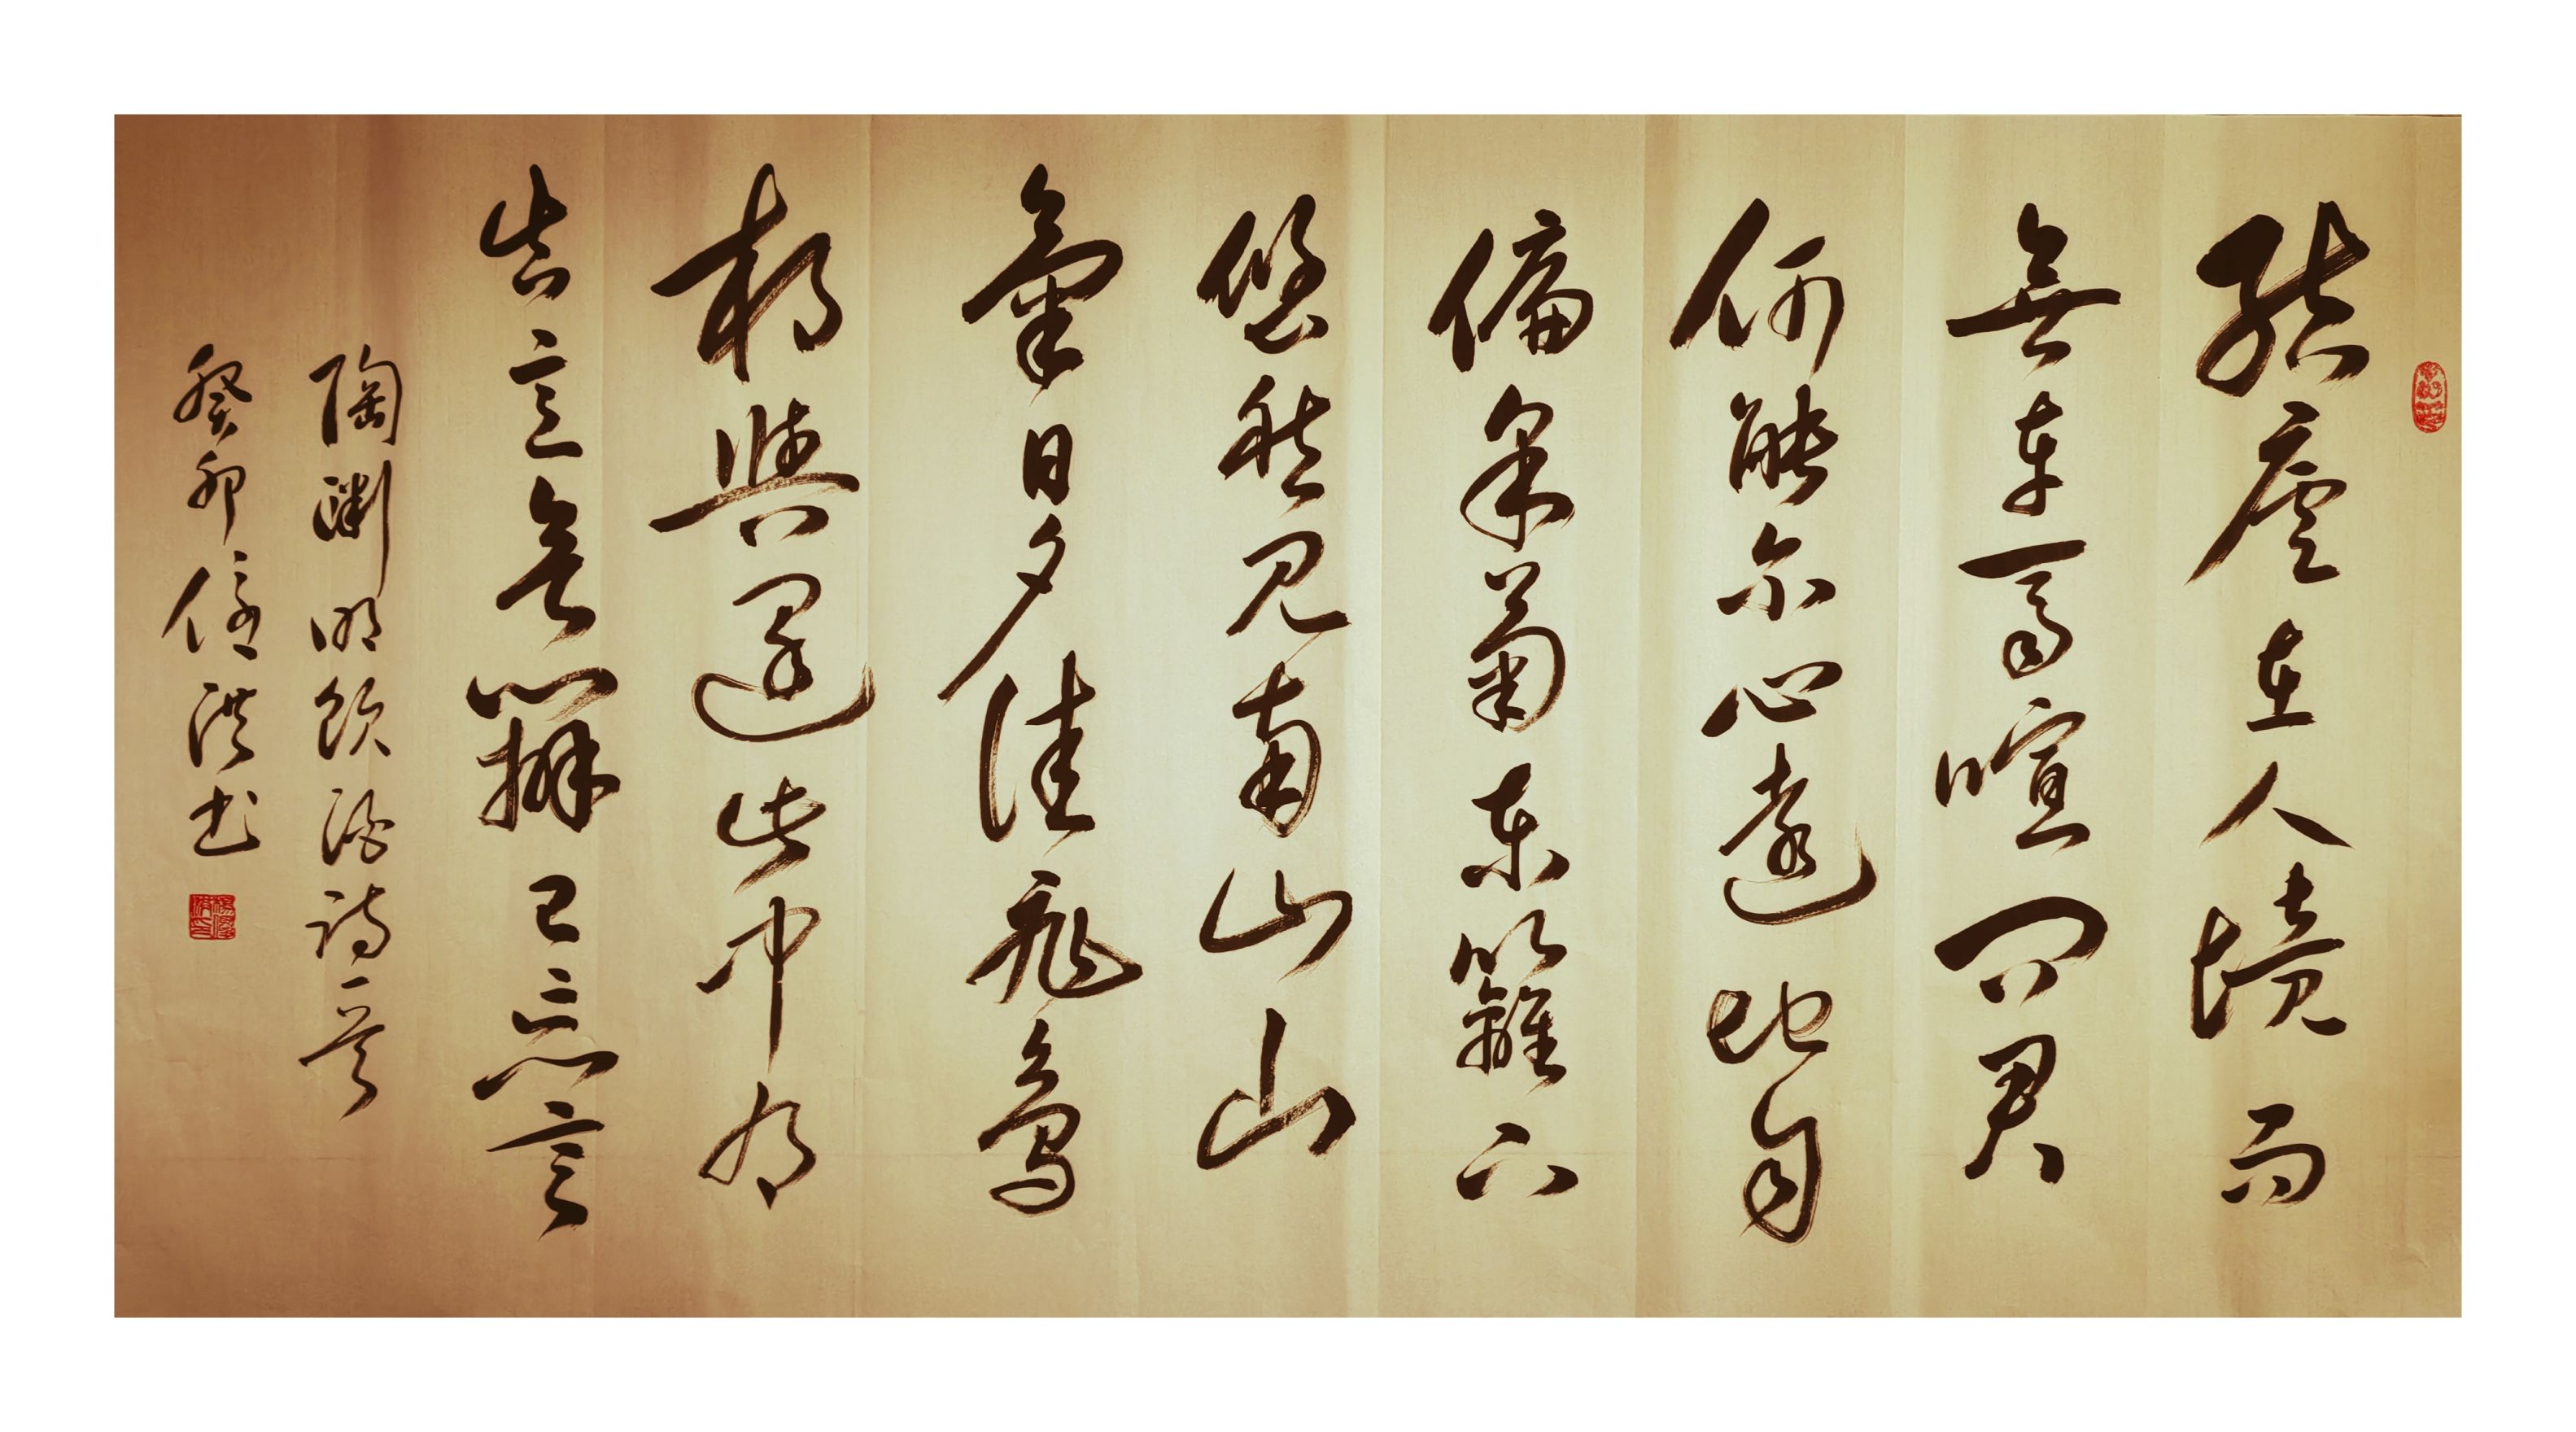 結廬在人境而
無車馬喧問君
何能尔心遠地自
偏采菊東籬下
悠然見南山山
氣日夕佳飛鳥
相與還此中有
真意欲辨已忘言
陶淵明飲酒詩一首
癸卯信洪書